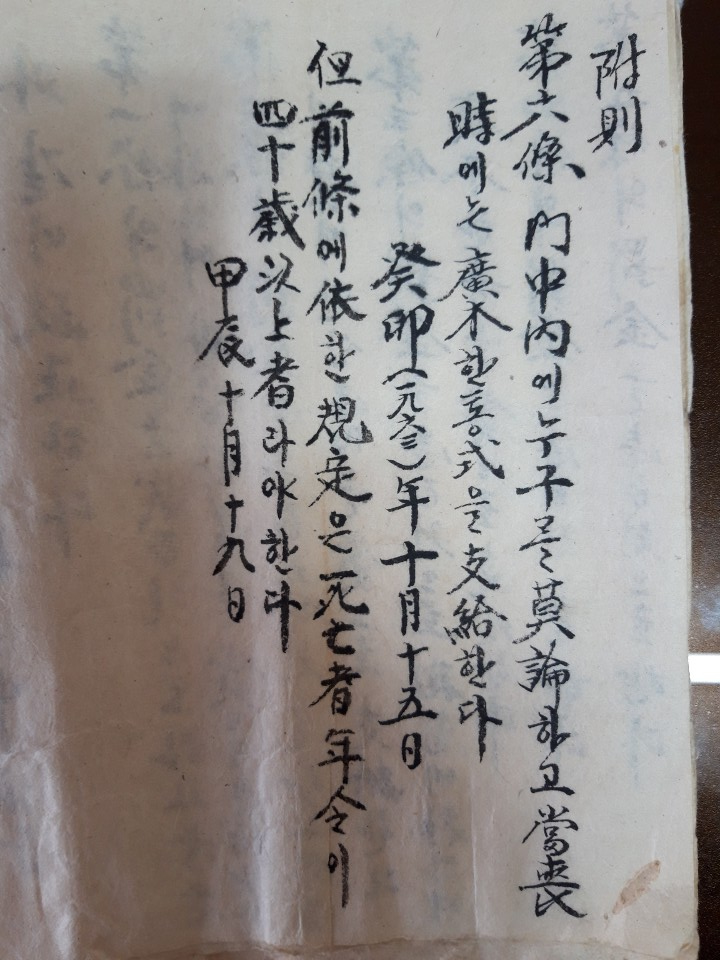 附則
第六條 門中內에 누구를 莫論하고 當喪
時에는 廣木 한통式을 支給한다
癸卯(一九六三)年 十月 十五日
但 前條에 依한 規定은 死亡者 年令이
四十歲以上者라야 한다
甲辰 十月 十九日